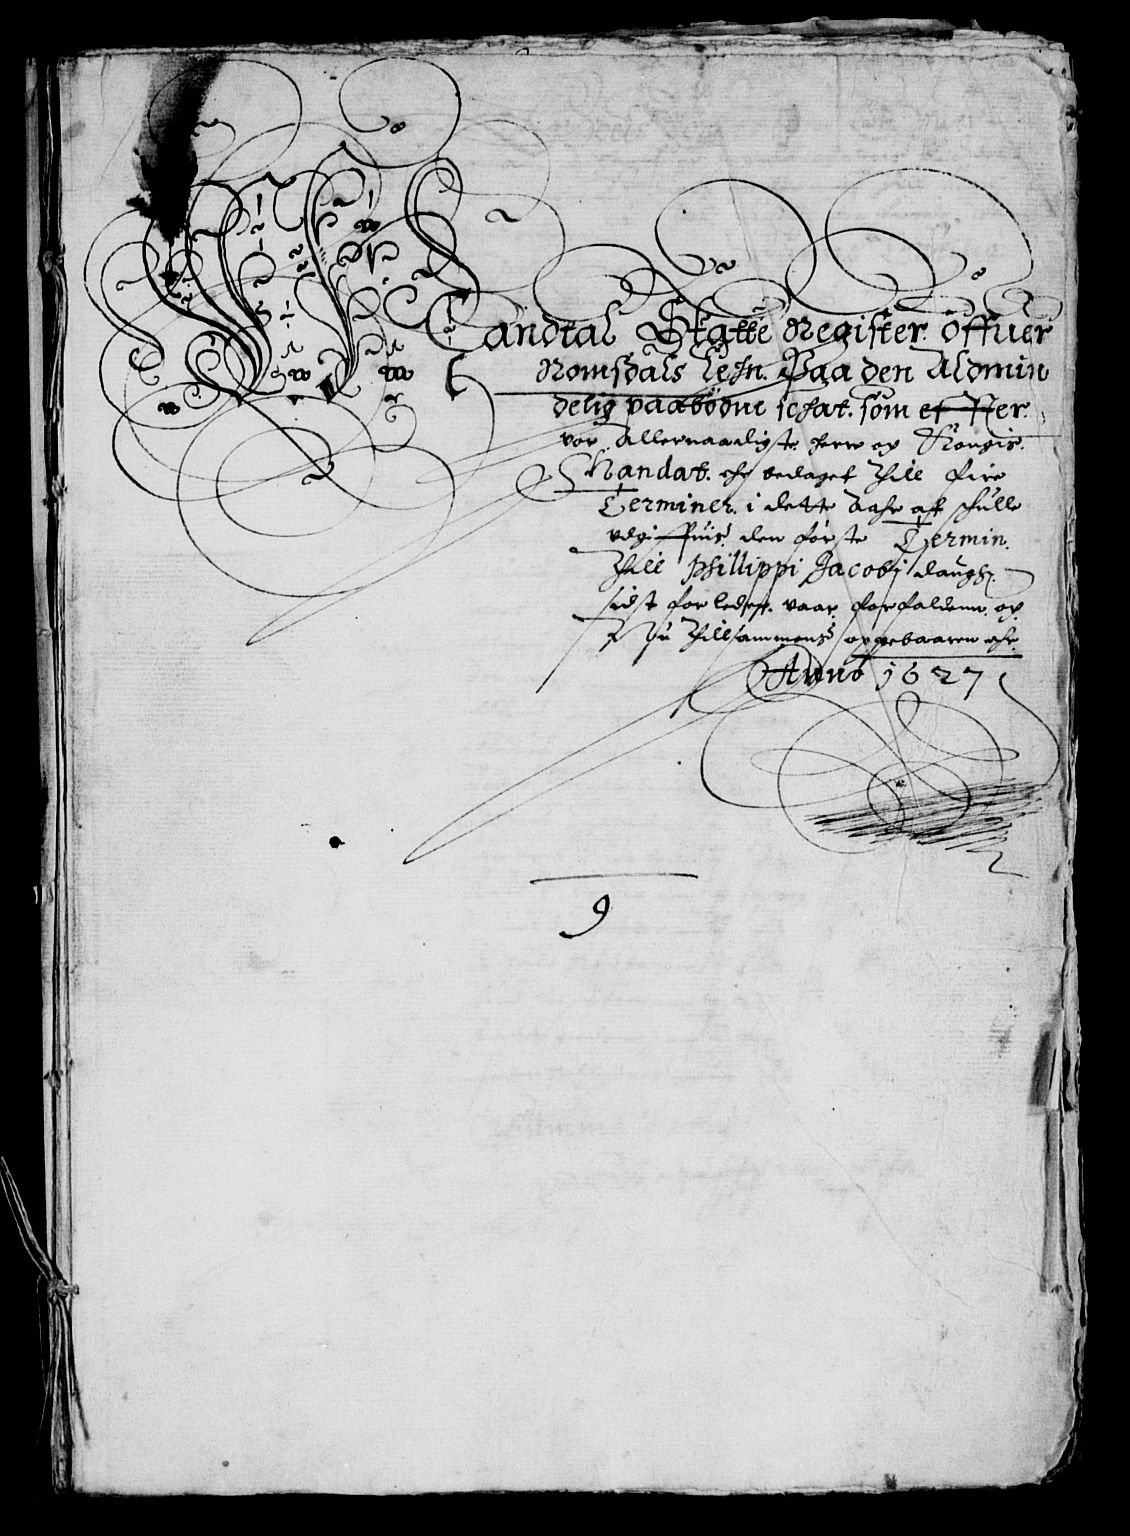 Mandtal Skatte Register. Offuer
Romsdals Lehn. Paa den Aldmin
delig paabödne schat. som efter.
vor Allernaadigste herre og Kongis.
Mandat. ehr bedaget Till fire
Terminer. i dette Aahr att schulle
udgiffuis. den förste Termin.
Till Phillippi Jacobi daugh.
sidst forleden. vaar forfalden. og
nu Tillsammens opgebaaren ehr.
Anno 1627
9